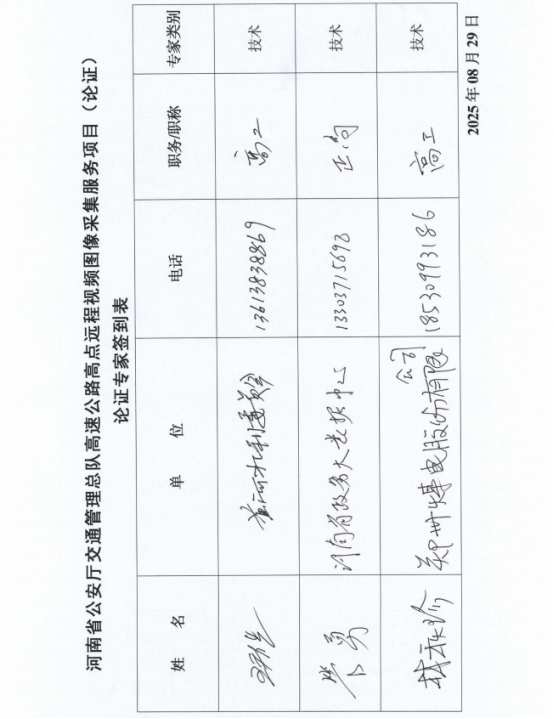 河南省公安厅交通管理总队高速公路高点远程视频图像采集服务项目（论证）
论证专家签到表
姓 名 单 位 电话 职务/职称 专家类别
13613838869 高工 技术
常勇 河南省政务大数据中心 13303715692 正高 技术
郑州煤电股份有限公司 18530993186 高工 技术
2025年08月29日